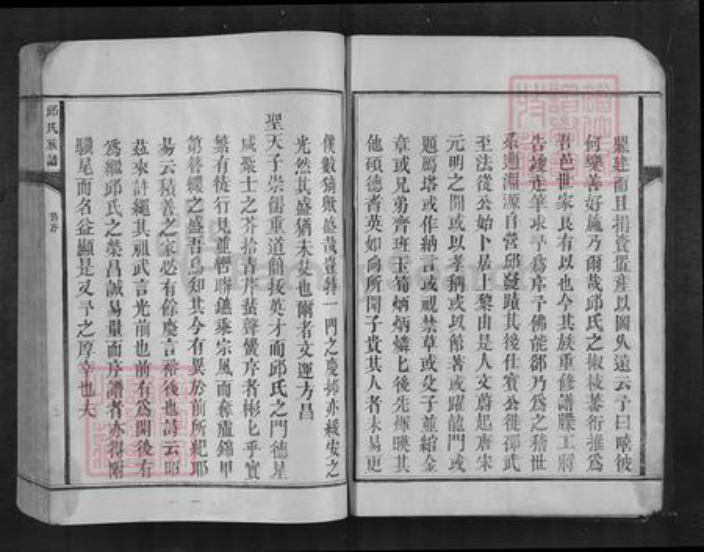 嚴建而且捐資置產以圖久遠云予曰嘻彼
何樂善好施乃爾哉邱氏之椒枝蕃衍推為
吾邑世家良有以也今其族重修譜牒工將
告竣走筆求予為序予佛能卻乃為之稽世
系溯淵源自營邱發蹟其後仕宦公徙邵武
至法從公始卜居上黎由是人文蔚起唐宋
元明之間或以孝稱或以節著或躍龍門或
題鴈塔或作納言或視禁草或父子並綰金
章或兄弟齊班玉筍炳炳燐燐七後先輝暎其
他碩德耆英如向所聞子貴其人者未易更
僕數猗歟盛哉豈特一門之慶抑亦綏安之
光然其盛猶未艾也爾者文運方昌
聖天子崇儒重道簡拔英才而邱氏之門德星
咸聚士之芥拾青芹蜚聲黌序者彬七乎實
繁有徒行見並轡聯鑣乘宗風而奪盧錦甲
第簪纓之盛吾烏知其今有異於前所紀耶
易云積善之家必有餘慶言裕後也詩云昭
茲來許繩其祖武言光前也前有為開後有
為繼邱氏之榮昌誠易量而序譜者亦得附
驥尾而名益顯是又予之厚幸也夫
邱氏族譜
FamilySearch